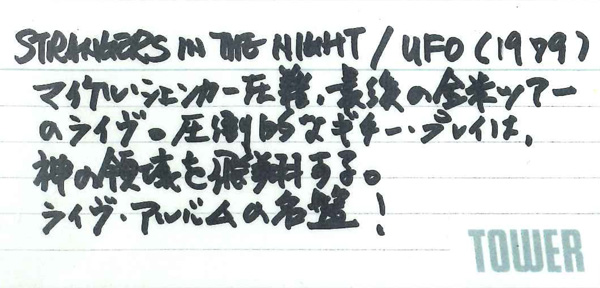 STRANGERS IN THE NIGHT / UFO (1979)
マイケル・シェンカー在籍、最後の全米ツアー
のライヴ。圧倒的なギター・プレイは、
神の領域を飛翔する。
ライヴ・アルバムの名盤！
TOWER